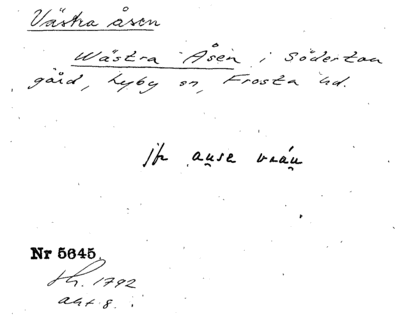 Västra åsen
Wästra Åsen i Södertou
gård, Lyby sn, Frosta hd.
jfr ause vráu
Nr 5645.
sk. 1792
akt 8.